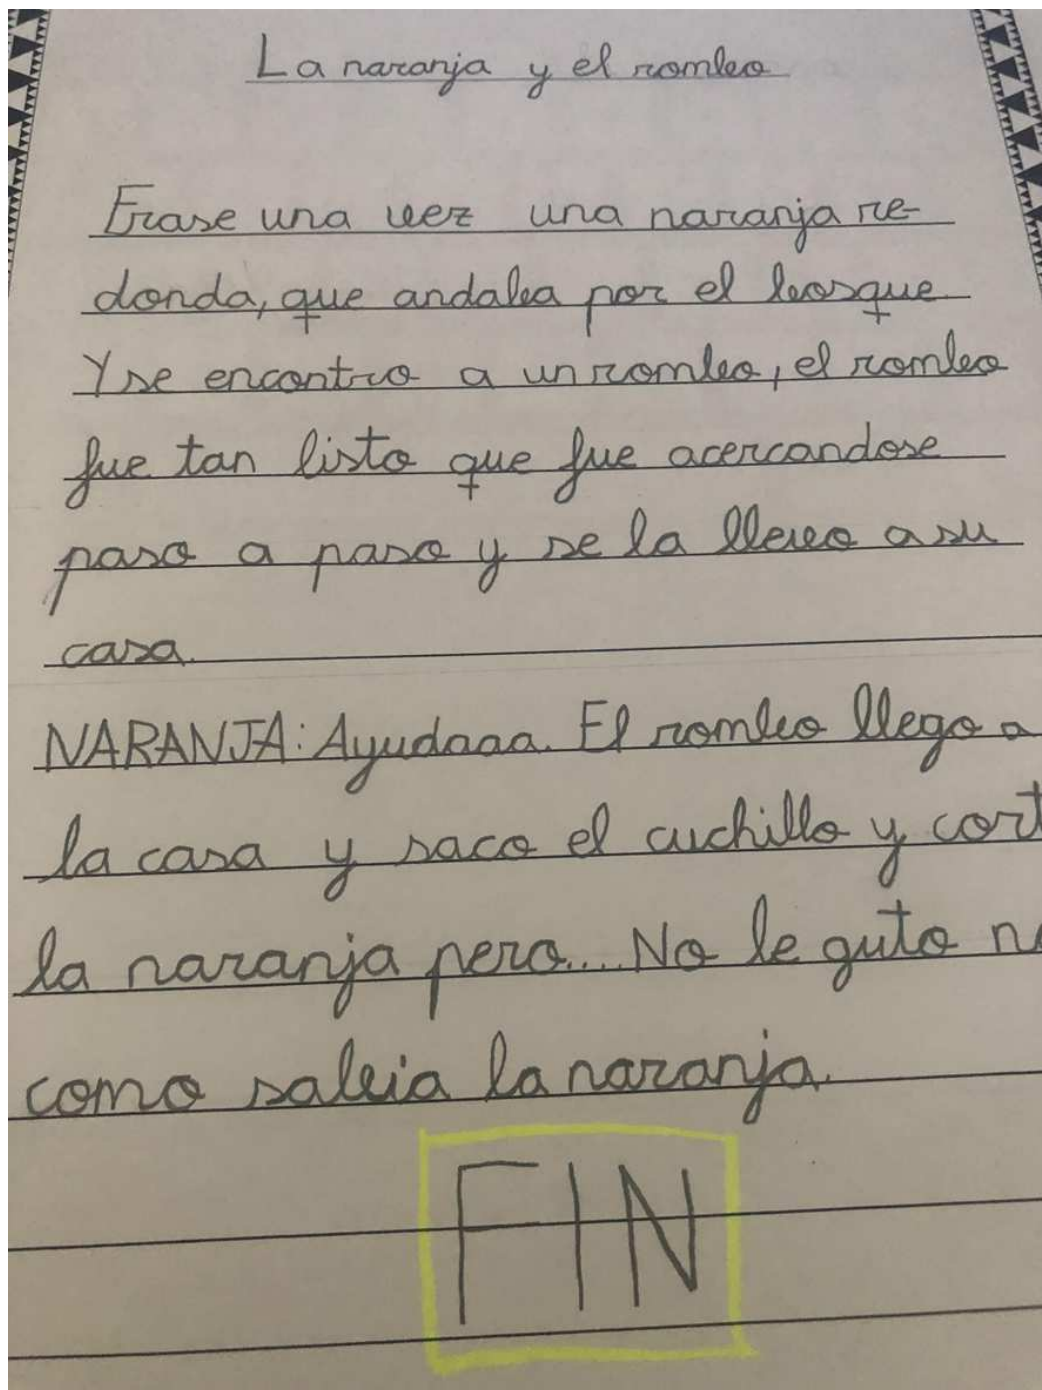 La naranja y el rombo
Erase una vez una naranja re-
donda, que andaba por el bosque
Y se encontro a un rombo, el rombo
fue tan listo que fue acercandose
paso a paso y se la llevo a su
casa.
NARANJA: Ayudaaa. El rombo llego a
la casa y saco el cuchillo y cort
la naranja pero... No le guto
como sabia la naranja.
FIN